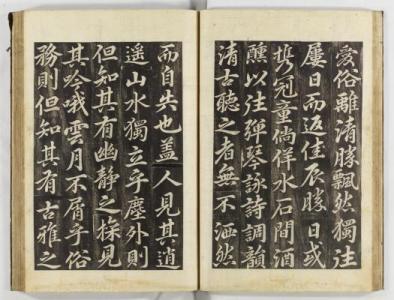 愛俗離清勝飄然獨往
屢日而返佳辰勝日或
携冠童倘佯水石間酒
醺以往彈琴詠詩調韻
清古聽之者無不洒然
而自失也盖人見其逍
遥山水獨立乎塵外則
但知其有幽静之操見
其吟哦雲月不屑乎俗
務則但知其有古雅之